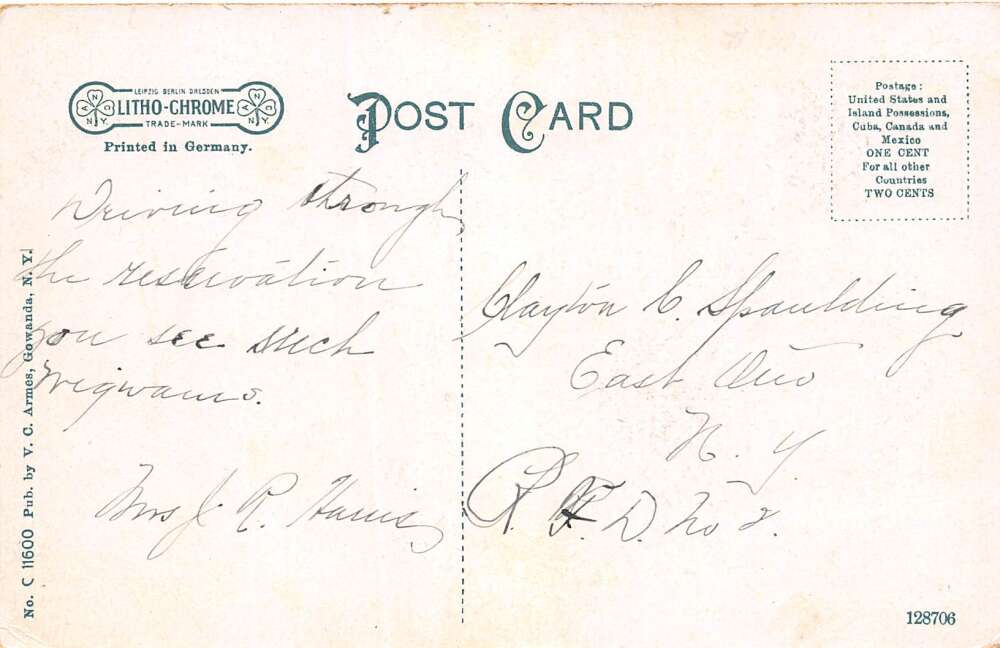 LEIPZIG BERLIN DRESDEN
LITHO-CHROME
TRADE-MARK
A N C N Y
A N C N.Y.
Printed in Germany.
POST CARD
Postage:
United States and
Island Possessions,
Cuba, Canada and
Mexico
ONE CENT
For all other
Countries
TWO CENTS
Driving through
the reservation
you see such
Wigwams.
Mrs J. R. Harris
Clayton C. Spaulding
East Otto
N. Y.
R. F. D. No 2.
No. C 11600 Pub. by V. C. Armes, Gowanda, N. Y.
128706